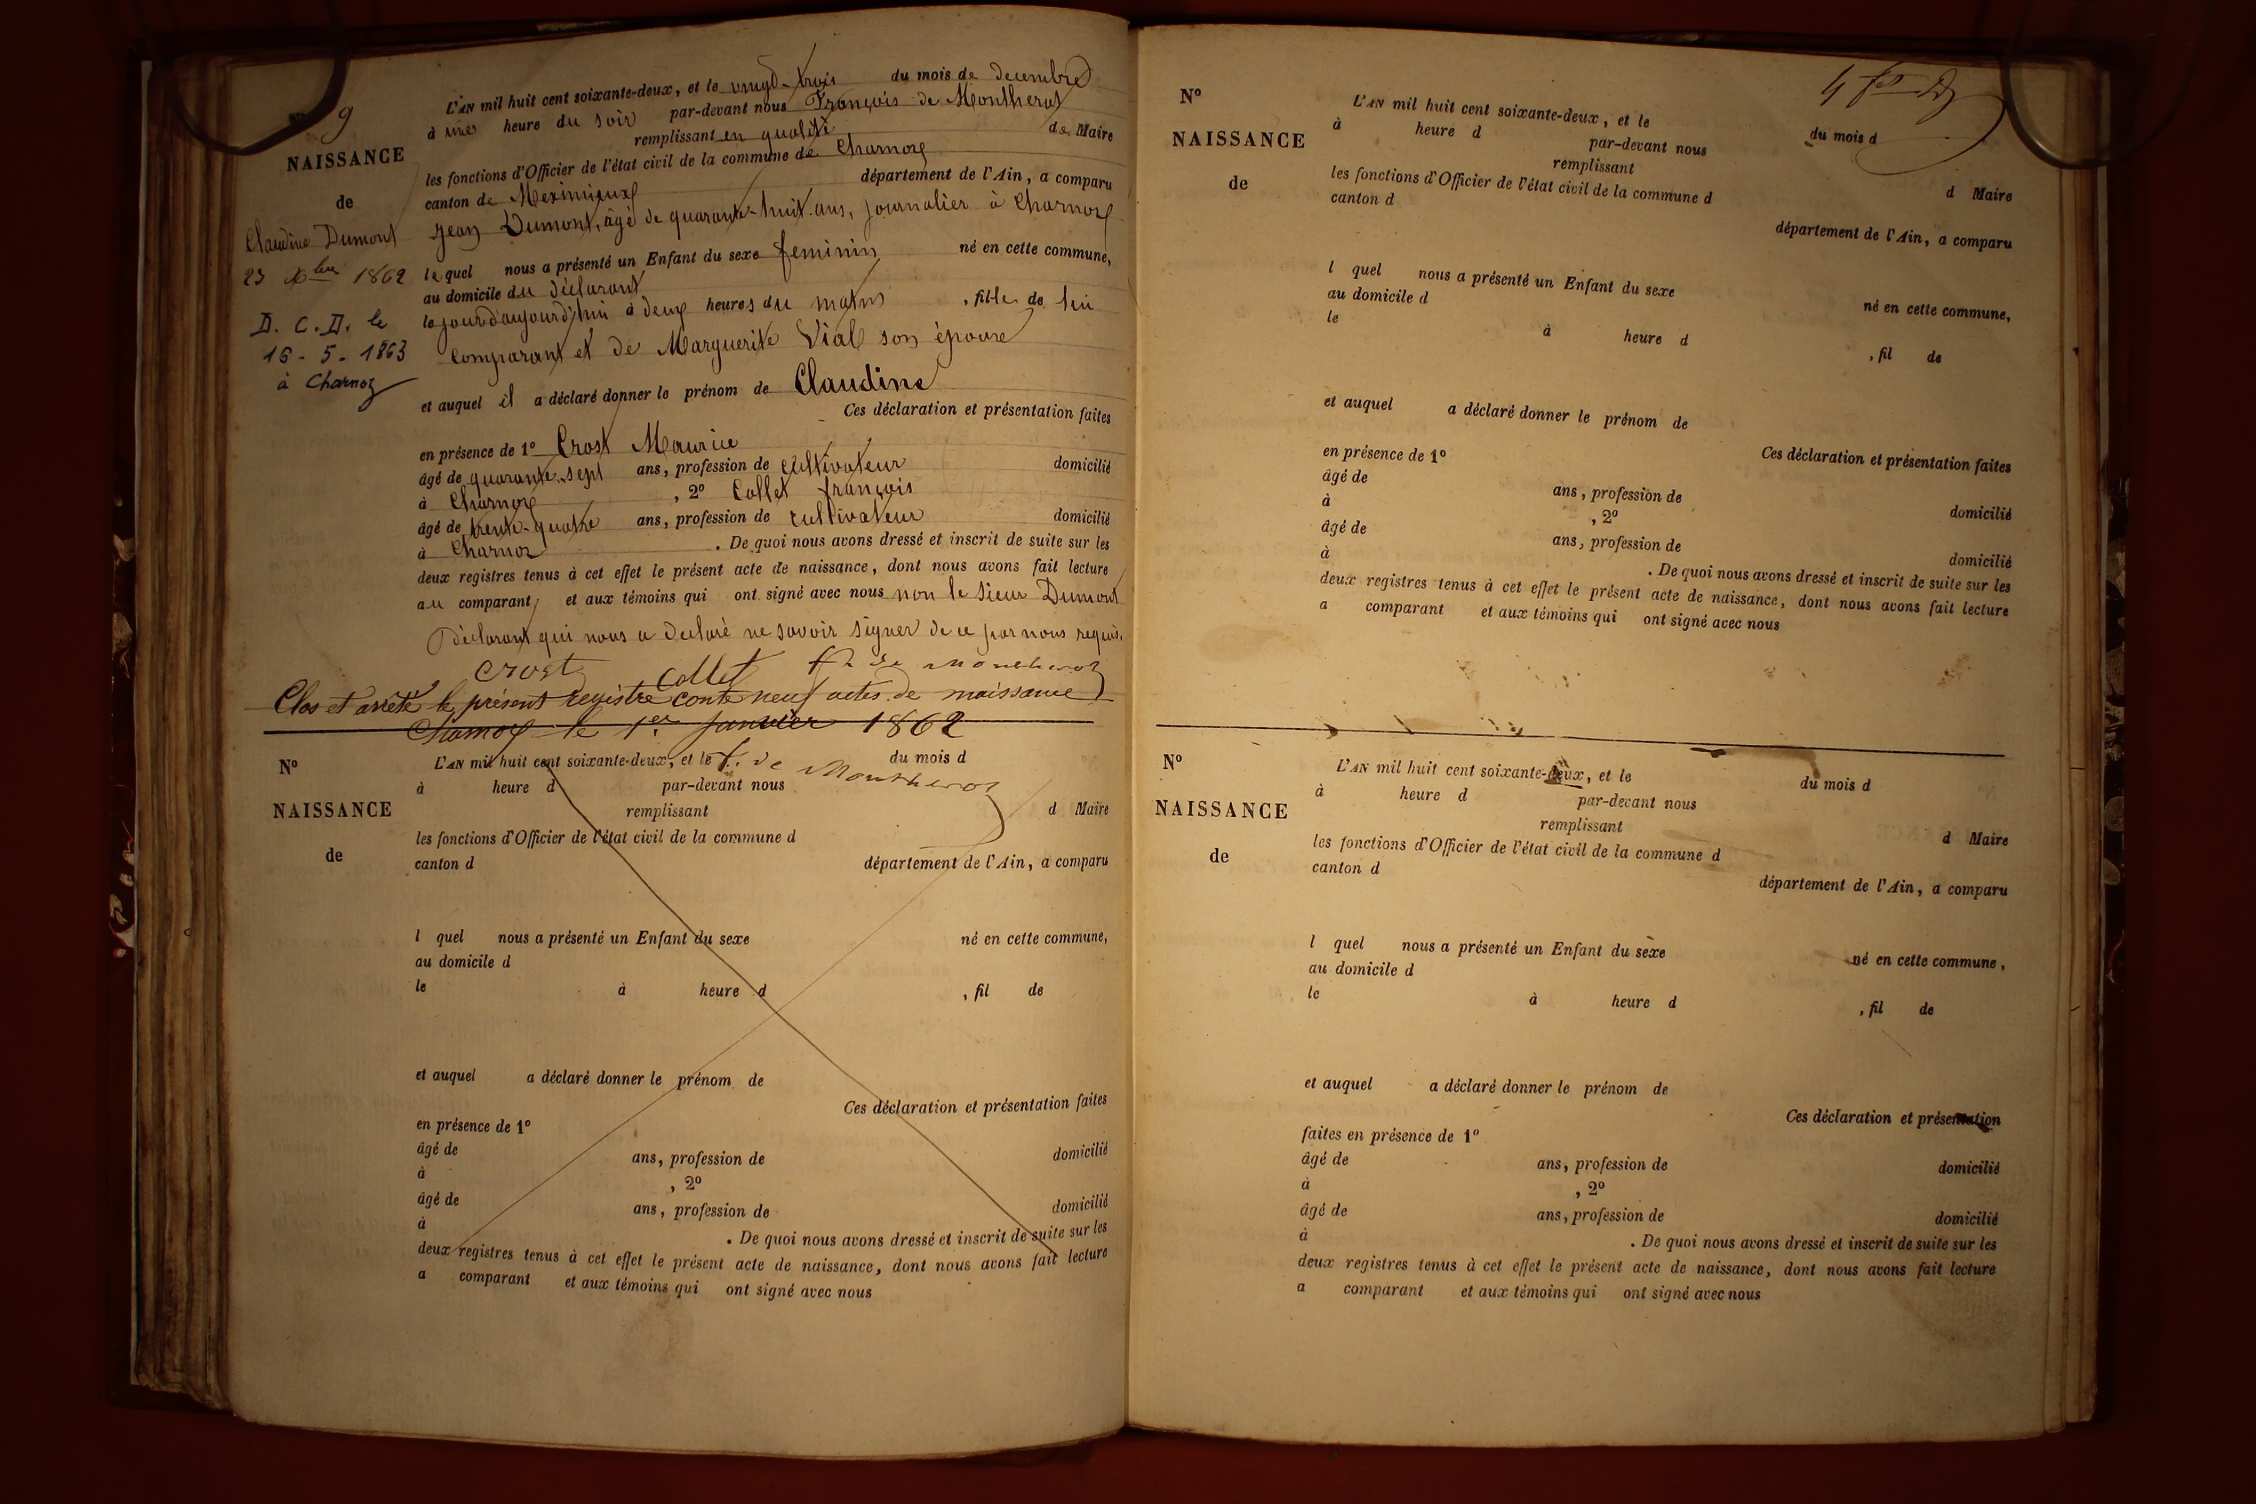 N° 9
NAISSANCE
de
Claudine Dumont
23 Xbre 1862
D. C. D. le
16 - 5 - 1863
à Charnoz
L'AN mil huit cent soixante-deux, et le vingt-trois du mois de decembre
à une heure du soir par-devant nous François de Montherot
remplissant en qualité de Maire
les fonctions d'Officier de l'état civil de la commune de Charnoz
canton de Meximieux département de l'Ain, a comparu
Jean Dumont, âgé de quarante-huit ans, journalier à Charnoz
lequel nous a présenté un Enfant du sexe feminin né en cette commune,
au domicile du déclarant
le jourd'aujourd'hui à deux heures du matin, fille de lui
comparant et de Marguerite Vial son épouse
et auquel il a déclaré donner le prénom de Claudine
Ces déclaration et présentation faites
en présence de 1° Crost Maurice
âgé de quarante-sept ans, profession de cultivateur domicilié
à Charnoz, 2° Collet françois
âgé de trente-quatre ans, profession de cultivateur domicilié
à Charnoz. De quoi nous avons dressé et inscrit de suite sur les
deux registres tenus à cet effet le présent acte de naissance, dont nous avons fait lecture
au comparant, et aux témoins qui ont signé avec nous non le sieur Dumont
déclarant qui nous a declaré ne savoir signer de ce par nous requis.
Crost Collet fr. de Montherot
Clos et arrêté le présent registre conte neuf actes de naissance
Charnoz le 1er janvier 1862
f. de Montherot
N°
NAISSANCE
de
L'AN mil huit cent soixante-deux, et le du mois d
à heure d par-devant nous
remplissant d Maire
les fonctions d'Officier de l'état civil de la commune d
canton d département de l'Ain, a comparu
l quel nous a présenté un Enfant du sexe né en cette commune,
au domicile d
le à heure d , fil de
et auquel a déclaré donner le prénom de
Ces déclaration et présentation faites
en présence de 1°
âgé de ans, profession de domicilié
à , 2°
âgé de ans, profession de domicilié
à . De quoi nous avons dressé et inscrit de suite sur les
deux registres tenus à cet effet le présent acte de naissance, dont nous avons fait lecture
a comparant et aux témoins qui ont signé avec nous
N°
NAISSANCE
de
L'AN mil huit cent soixante-deux, et le du mois d
à heure d par-devant nous
remplissant d Maire
les fonctions d'Officier de l'état civil de la commune d
canton d département de l'Ain, a comparu
l quel nous a présenté un Enfant du sexe né en cette commune,
au domicile d
le à heure d , fil de
et auquel a déclaré donner le prénom de
Ces déclaration et présentation faites
en présence de 1°
âgé de ans, profession de domicilié
à , 2°
âgé de ans, profession de domicilié
à . De quoi nous avons dressé et inscrit de suite sur les
deux registres tenus à cet effet le présent acte de naissance, dont nous avons fait lecture
a comparant et aux témoins qui ont signé avec nous
N°
NAISSANCE
de
L'AN mil huit cent soixante-deux, et le du mois d
à heure d par-devant nous
remplissant d Maire
les fonctions d'Officier de l'état civil de la commune d
canton d département de l'Ain, a comparu
l quel nous a présenté un Enfant du sexe né en cette commune,
au domicile d
le à heure d , fil de
et auquel a déclaré donner le prénom de
Ces déclaration et présentation
faites en présence de 1°
âgé de ans, profession de domicilié
à , 2°
âgé de ans, profession de domicilié
à . De quoi nous avons dressé et inscrit de suite sur les
deux registres tenus à cet effet le présent acte de naissance, dont nous avons fait lecture
a comparant et aux témoins qui ont signé avec nous